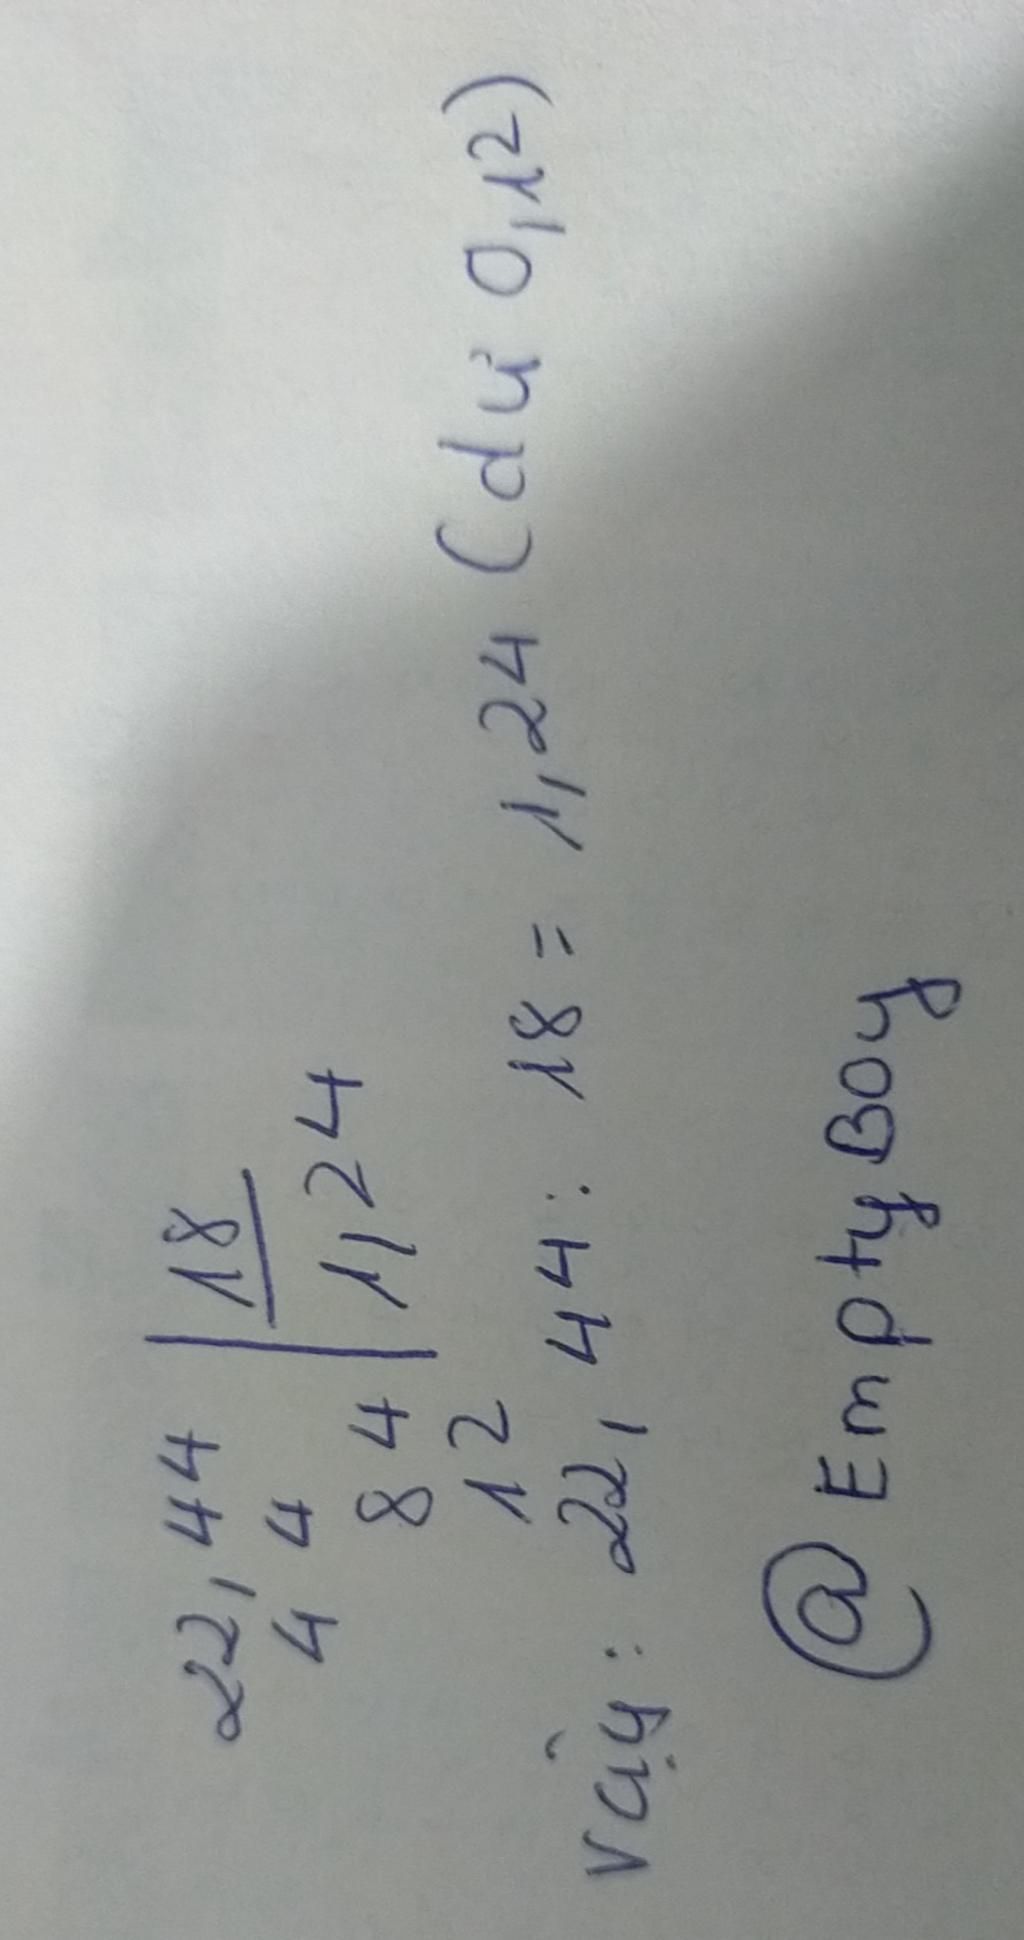 22,44 | 18
4 4 | 1,24
84
12
Vậy: 22,44: 18 = 1,24 (dư 0,12)
@EmptyBoy